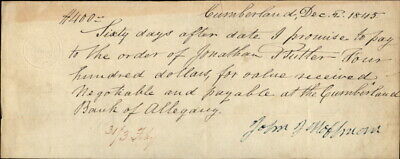 $400= Cumberland, Dec 2, 1845
Sixty days after date I promise to pay
to the order of Jonathan Butler Four
hundred dollars, for value received
Negotiable and payable at the Cumberland
Bank of Allegany
John J Hoffman